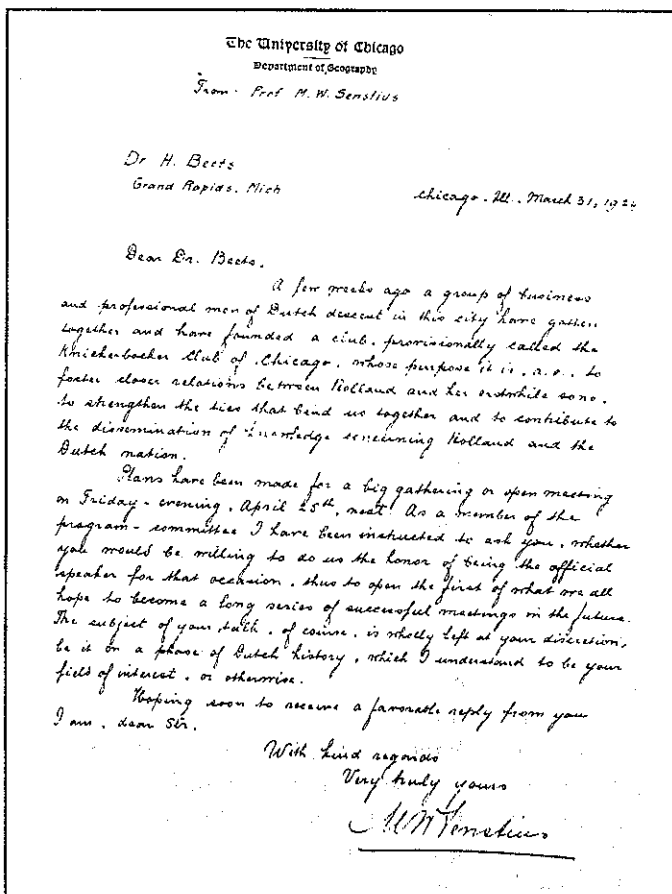 The University of Chicago
Department of Geography
From - Prof M. W. Senstius
Dr H. Beets
Grand Rapids. Mich
Chicago. Ill. March 31, 1924
Dear Dr. Beets,
A few weeks ago a group of business
and professional men of Dutch descent in this city have gathered
together and have founded a club, provisionally called the
Knickerbocker Club of Chicago, whose purpose it is, a.o., to
foster closer relations between Holland and her erstwhile sons,
to strengthen the ties that bind us together and to contribute to
the dissemination of knowledge concerning Holland and the
Dutch nation.
Plans have been made for a big gathering or open meeting
on Friday-evening, April 25th, next. As a member of the
program-committee I have been instructed to ask you, whether
you would be willing to do us the honor of being the official
speaker for that occasion, thus to open the first of what we all
hope to become a long series of successful meetings in the future.
The subject of your talk, of course, is wholly left at your discretion,
be it on a phase of Dutch history, which I understand to be your
field of interest, or otherwise.
Hoping soon to receive a favorable reply from you
I am, dear Sir,
With kind regards
Very truly yours
M W Senstius